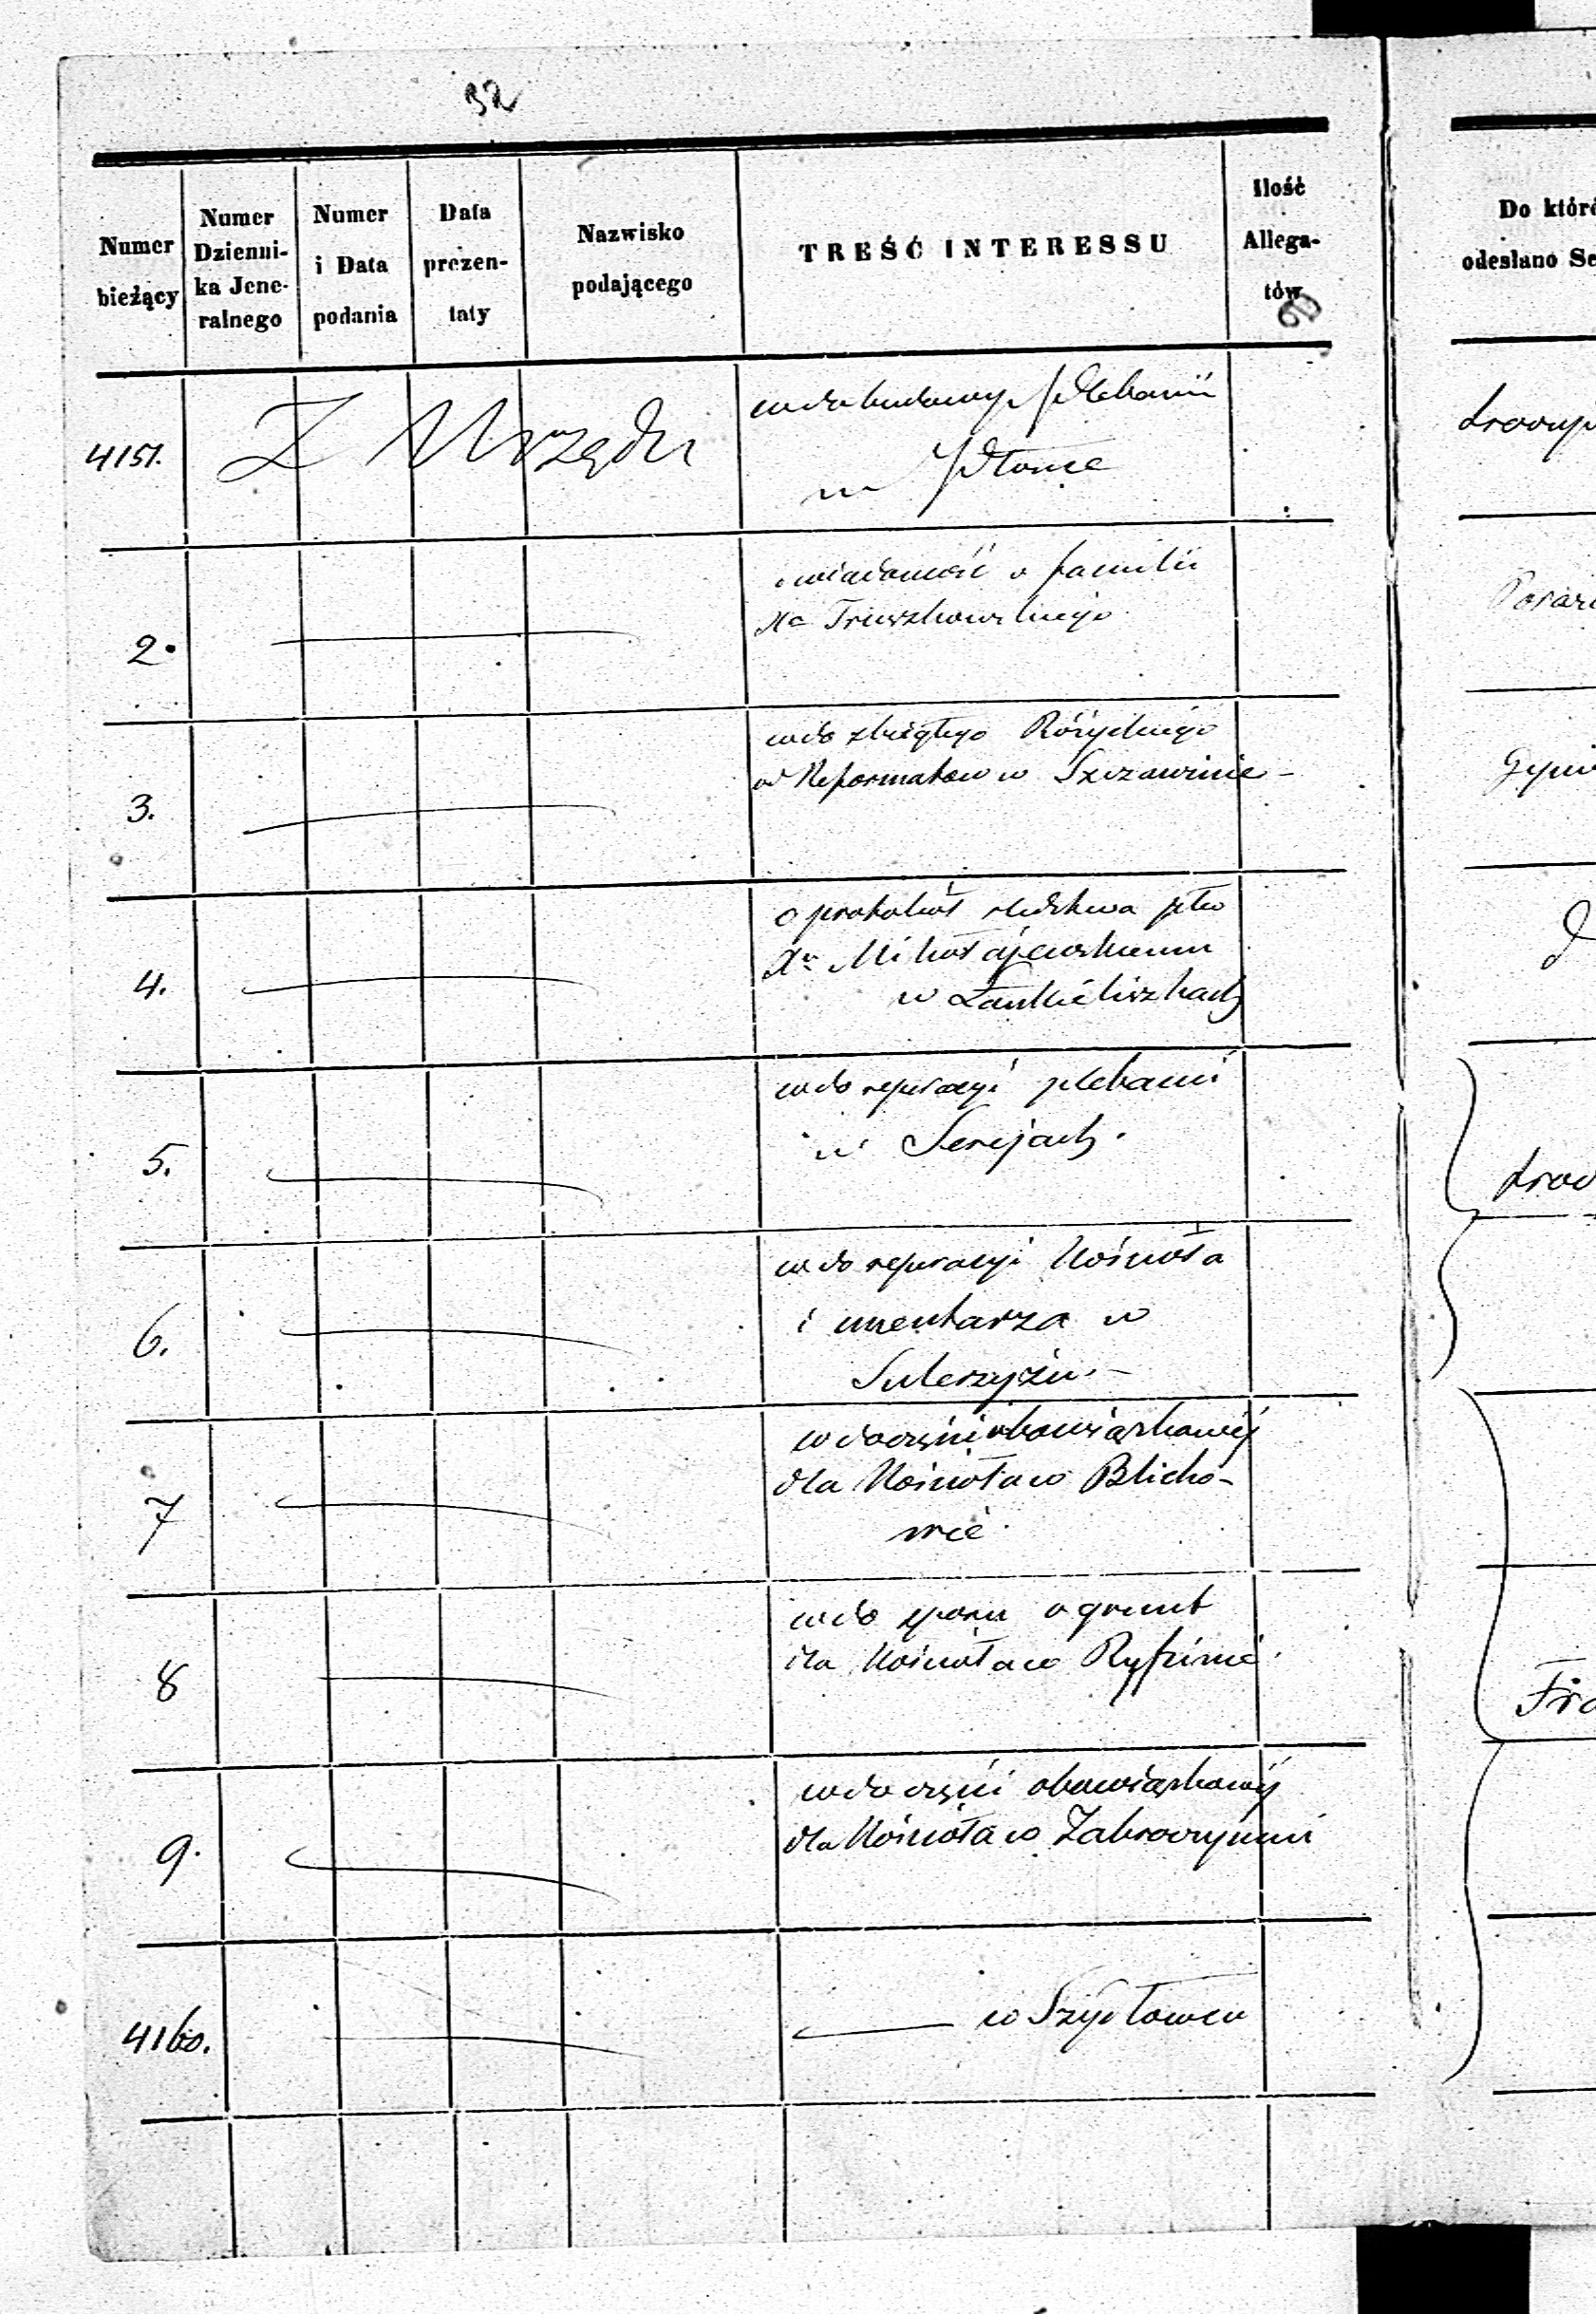 32
Numer bieżący
Numer Dzienni-ka Jene-ralnego
Numer i Data podania
Data prezen-taty
Nazwisko podającego
TREŚĆ INTERESSU
Ilość Allega-tów
Do któr
odesłano Se
4151.
Z Urzędu
wdo budowy plebanii
w Płonie
2.
wiadomość o familii
Xa Truszkowskiego
3.
wdo zbiegłego Różyckiego
od Reformatów w Szczawinie
4.
o protokół śledztwa płko
Xu Mikołajewskiemu
w Łankieliszkach
5.
wdo reperacyi plebanii
w Serejach.
6.
wdo reperacyi Kościoła
i cmentarza w
Sulerzyżu
7
wdo części obowiązkowéj
dla Kościoła w Blicho-
wie
8
wdo sporu o grunt
dla Kościoła w Rypinie
9.
wdo części obowiązkowéj
dla Kościoła w Zakroczymiu
4160.
w Szydłowcu